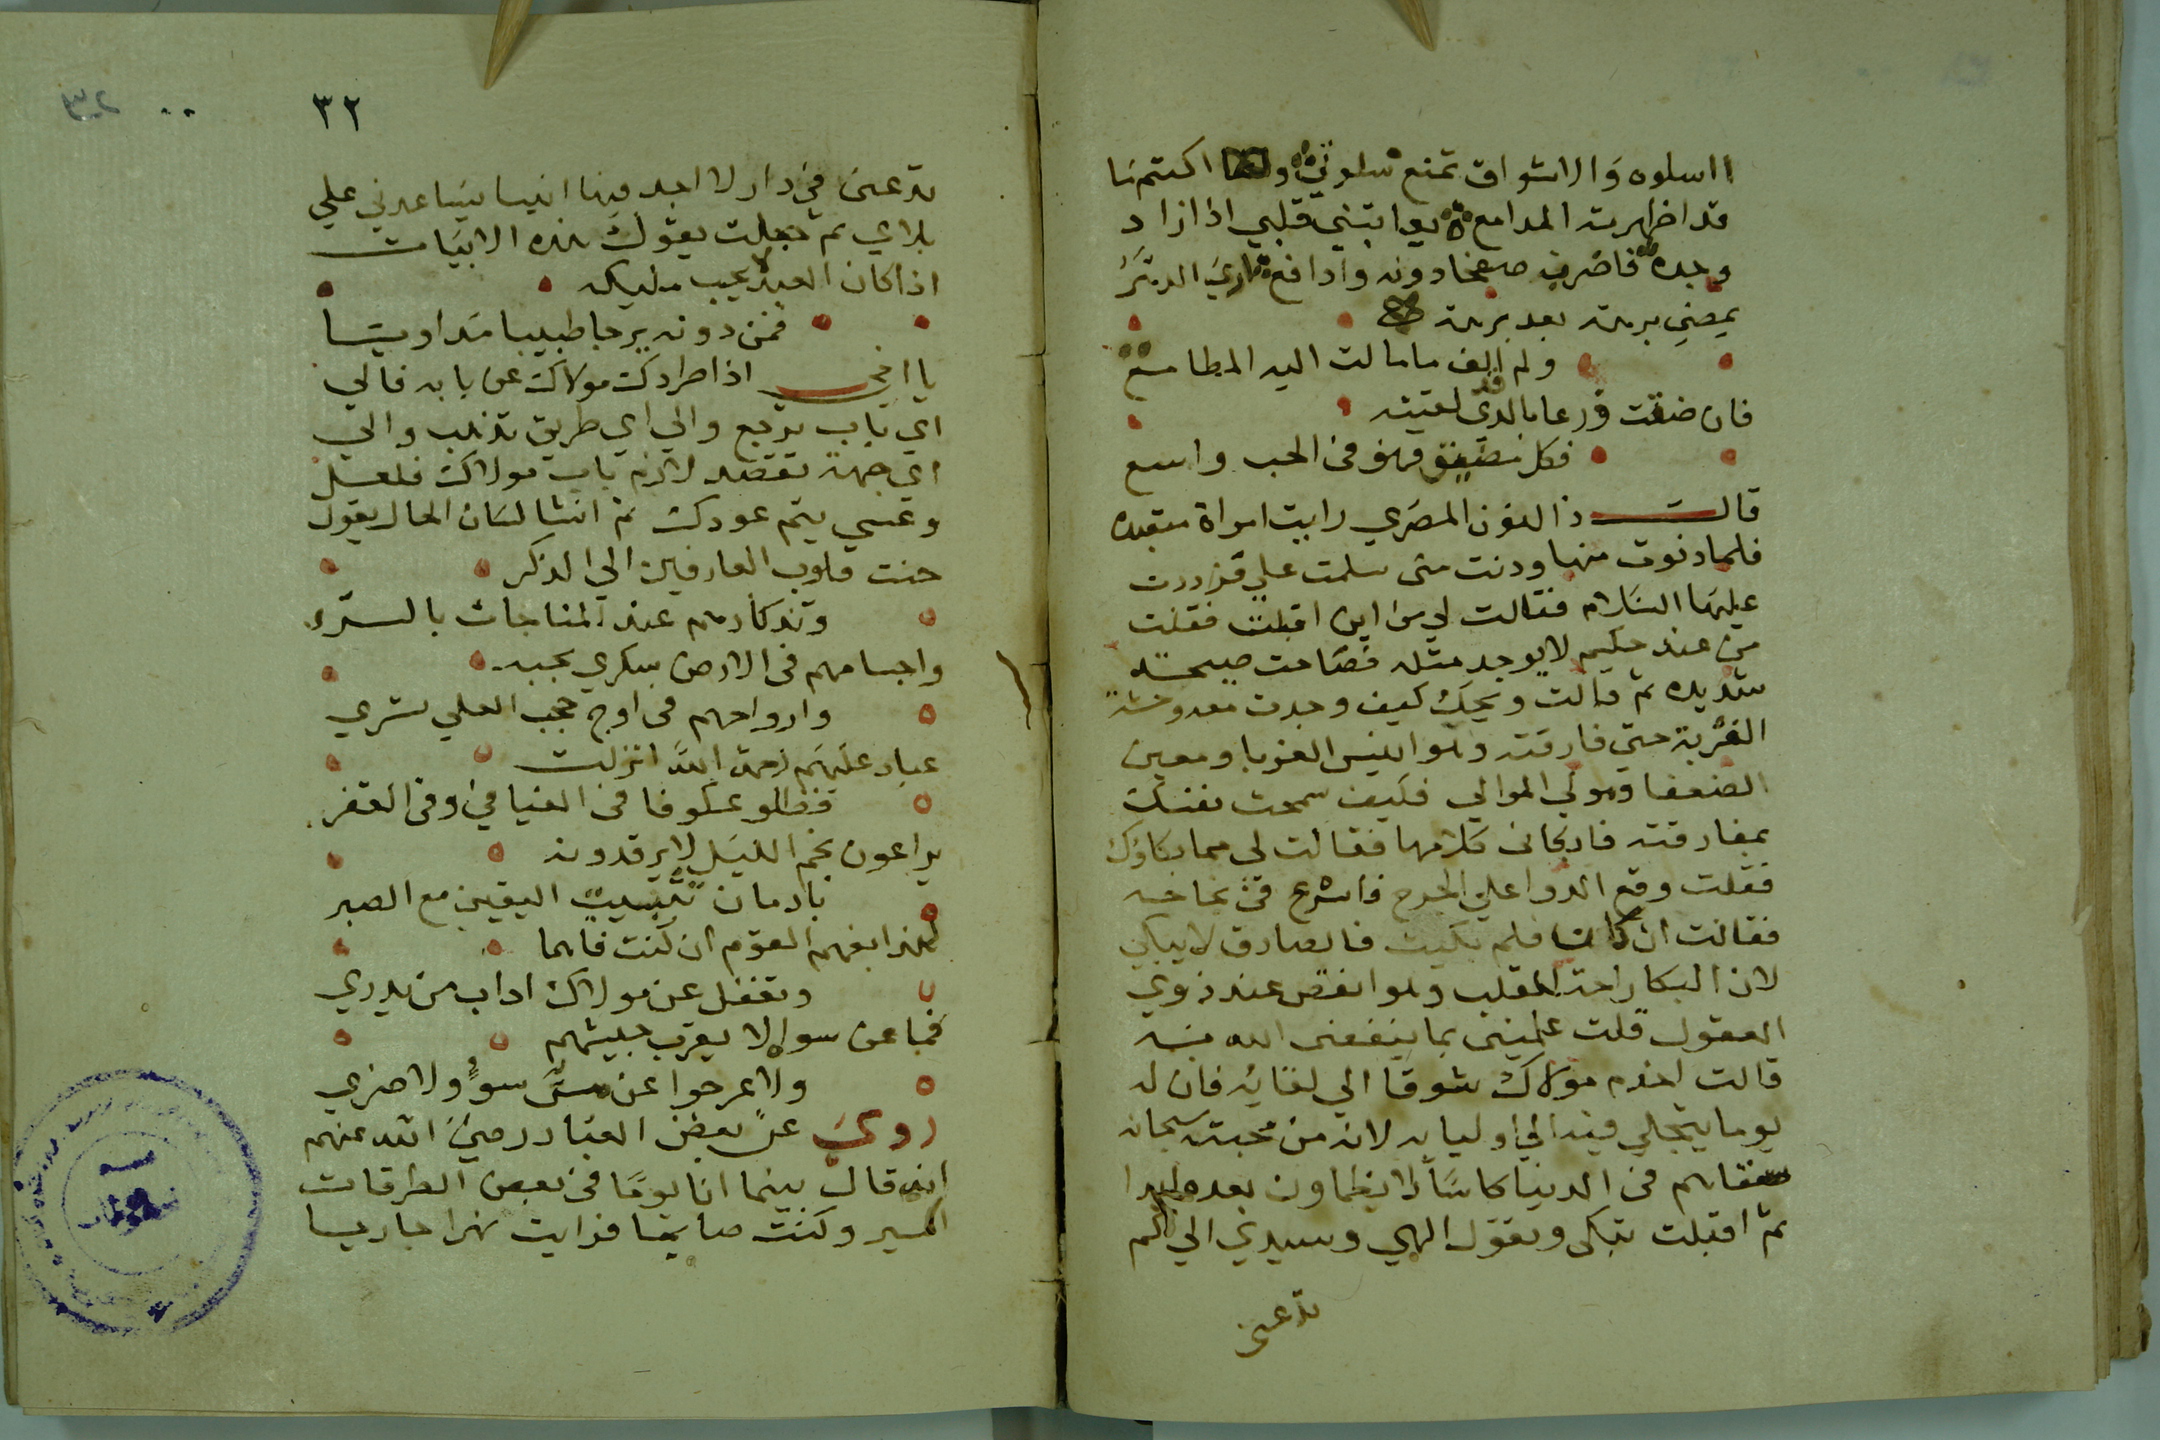 السلوه والاشواق تمنع سلوتي واكتمها
قد اظهرت المدامع يعاتبني قلبي اذا زاد
وجده فاضرب صفحا دونه وادافع اري الدهر
يمضي برهة بعد برهة
ولم الف ما مالت اليه المطامع
فان ضقت ذرعا بالدى قد لقيته
فكل مضيق فهو فى الحب واسع
قالــت ذا النون المصري رايت امراة متعبده
فلما دنوت منها ودنت منى سلمت علي فرددت
عليها السلام فقالت لي من اين اقبلت فقلت
من عند حكيم لا يوجد مثله فصاحت صيحة
شديده ثم قالت ويحك كيف وجدت معه وحشة
الغربة حتى فارقته وهو انيس الغربا ومعين
الضعفا ومولي الموالي فكيف سمحت نفسك
بمفارقته فابكانى كلامها فقالت لي مما بكاوك
فقلت وقع الدوا علي الجرح فاسرع فى نجاحه
فقالت ان كان فلم بكيت فالصادق لا يبكي
لان البكا راحة للقلب وهو انقص عند ذوي
العقول قلت علمينى بما ينفعنى الله به
قالت اخدم مولاك شوقا الي لقايه فان له
يوما يتجلي فيه الي اوليايه لانه من محبته سبحانه
سقاهم فى الدنيا كاسا لا يظماون بعدها ابدا
ثم اقبلت تبكى وتقول الهي وسيدي الي كم
تدعنى
٣٢
٣٢
تدعنى في دار لا اجد فيها انيسا يساعدني علي
بلاي ثم جعلت تقول هذه الابيات
اذا كان العبد يحب مليكه
فمن دونه يرجا طبيبا مداويا
يا اخي اذا طردك مولاك عن بابه فالي
اي باب ترجع والي اي طريق تذهب والي
اي جهة تقصد لازم باب مولاك فلعل
وعسي يتم عودك ثم انشا لسان الحال يقول
حنت قلوب العارفين الي الذكر
وتذكارهم عند المناجات بالسر
واجسامهم فى الارض سكري بحبه
وارواحهم فى اوج حجب العلي تسري
عباد عليهم رحمة الله انزلت
فظلو عكوفا فى الفيافي وفى القفر
يراعون نجم الليل لا يرقدونه
بادمان تثبيت اليقين مع الصبر
فهذا نعيم القوم ان كنت فاهما
وتغفل عن مولاك اداب من يدري
فما عن سواه لا يقرب جيشهم
ولا عرجوا عن مس سوء ولا ضري
روي عن بعض العباد رضي الله عنهم
انه قال بينما انا يوما فى بعض الطرقات
اسير وكنت صايما فرايت نهرا جاريا